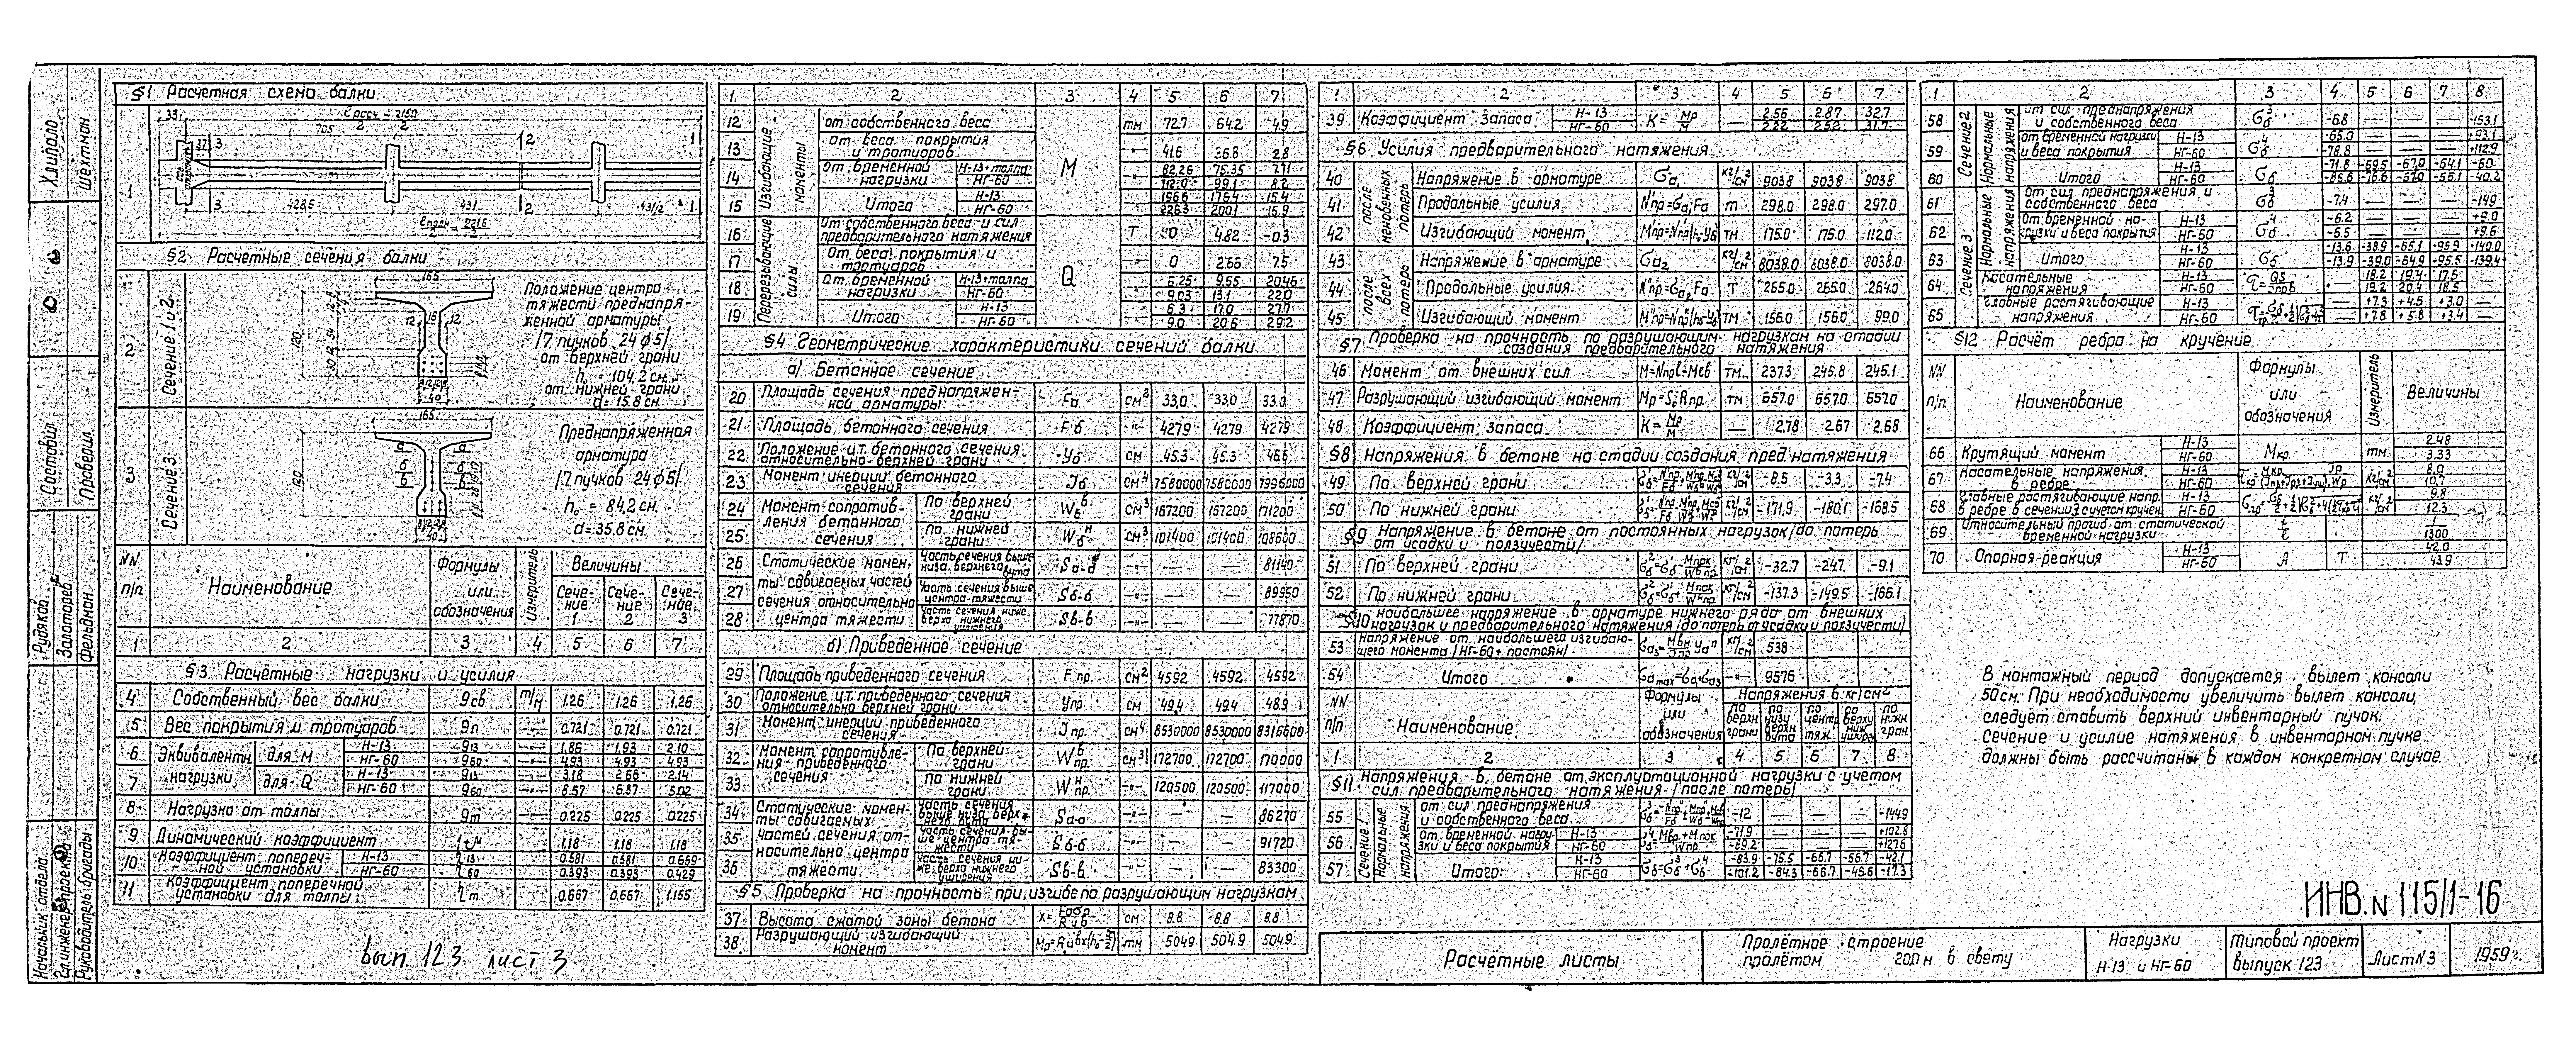 §1 Расчетная схема балки
ℓ расч = 2160
705
37
428,5
431
431/2
§2 Расчетные сечения балки
Сечение 1 и 2
165
120
40
Положение центра
тяжести преднапря-
женной арматуры
/7 пучков 24ф5/
от верхней грани
h₀ = 104,2 см
от нижней грани
d = 15.8 см
Сечение 3
165
120
40
Преднапряженная
арматура
/7 пучков 24ф5/
h₀ = 84,2 см
d = 35.8 см
NN п/п Наименование Формулы или обозначения Измеритель Величины
Сечение 1 Сечение 2 Сечение 3
1 2 3 4 5 6 7
§3 Расчётные нагрузки и усилия
4 Собственный вес балки gсв т/м 1.26 1.26 1.26
5 Вес покрытия и тротуаров gп -"- 0.721 0.721 0.721
6 Эквивалентн. нагрузки для М Н-13 g13 1.86 1.93 2.10
НГ-60 g60 4.93 4.93 4.93
7 для Q Н-13 g13 3.18 2.66 2.14
НГ-60 g60 8.57 6.87 5.02
8 Нагрузка от толпы gт -"- 0.225 0.225 0.225
9 Динамический коэффициент 1.18 1.18 1.18
10 Коэффициент попереч-ной установки Н-13 0.581 0.581 0.669
НГ-60 0.393 0.393 0.429
11 Коэффициент поперечной установки для толпы 0.667 0.667 1.155
1 2 3 4 5 6 7
Изгибающие моменты M
12 от собственного веса тм 72.7 64.2 4.9
13 от веса покрытия и тротуаров 41.6 36.8 2.8
14 от временной нагрузки Н-13+толпа 82.26 75.35
НГ-60 112.0 99.1 8.2
15 Итого Н-13 196.6 176.4 15.4
НГ-60 226.3 200.1 15.9
Перерезывающие силы Q
16 От собственного веса и сил предварительного натяжения Т 0 4.82 -0.3
17 От веса покрытия и тротуаров 0 2.66 7.5
18 От временной нагрузки Н-13+толпа 6.25 9.55 20.46
НГ-60 9.03 13.1 22.0
19 Итого Н-13 6.3 17.0 27.7
НГ-60 9.0 20.6 29.2
§4 Геометрические характеристики сечений балки
а) Бетонное сечение
20 Площадь сечения преднапряжен-ной арматуры Fа см² 33.0 33.0 33.0
21 Площадь бетонного сечения Fб -"- 4279 4279 4279
22 Положение ц.т. бетонного сечения относительно верхней грани Уб см 45.3 45.3 46.6
23 Момент инерции бетонного сечения Jб см⁴ 7580000 7580000 7996000
24 Момент сопротив-ления бетонного сечения По верхней грани Wб см³ 167200 167200 171200
25 По нижней грани Wбн см³ 101400 101400 108600
26 Статические момен-ты сдвигаемых частей сечения относительно центра тяжести Часть сечения выше низа верхнего вута Sа-а 81140
27 Часть сечения выше центра тяжести Sб-б -"- — — 89950
28 Часть сечения ниже верха нижнего уширения Sв-в -"- — — 77870
б) Приведенное сечение
29 Площадь приведенного сечения Fпр. см² 4592 4592 4592
30 Положение ц.т. приведенного сечения относительно верхней грани Упр. см 49.4 49.4 48.9
31 Момент инерции приведенного сечения Jпр. см⁴ 8530000 8530000 8316000
32 Момент сопротивле-ния приведенного сечения По верхней грани Wпр.в см³ 172700 172700 170000
33 По нижней грани Wпр.н -"- 120500 120500 117000
34 Статические момен-ты сдвигаемых частей сечения от-носительно центра тяжести часть сечения выше низа верх-него вута Sа-а -"- — — 86270
35 часть сечения вы-ше центра тя-жести Sб-б -"- — — 91720
36 часть сечения ни-же верха нижнего уширения Sв-в -"- — — 83300
§5 Проверка на прочность при изгибе по разрушающим нагрузкам
37 Высота сжатой зоны бетона см 8.8 8.8 8.8
38 Разрушающий изгибающий момент тм 504.9 504.9 504.9
1 2 3 4 5 6 7
39 Коэффициент запаса Н-13 K=Mр/M — 2.56 2.87 32.7
НГ-60 2.22 2.52 31.7
§6 Усилия предварительного натяжения
после мгновенных потерь
40 Напряжение в арматуре σа₁ кг/см² 9038 9038 9038
41 Продольные усилия N'пр=σа₁Fа т 298.0 298.0 297.0
42 Изгибающий момент тм 175.0 175.0 112.0
после всех потерь
43 Напряжение в арматуре σа₂ кг/см² 8038.0 8038.0 8038.0
44 Продольные усилия N"пр=σа₂Fа Т 265.0 265.0 264.0
45 Изгибающий момент тм 156.0 156.0 99.0
§7 Проверка на прочность по разрушающим нагрузкам на стадии
создания предварительного натяжения
46 Момент от внешних сил M=Nпрℓ-Mсв тм 237.3 245.8 245.1
47 Разрушающий изгибающий момент тм 657.0 657.0 657.0
48 Коэффициент запаса K=Mр/M — 2.78 2.67 2.68
§8 Напряжения в бетоне на стадии создания пред.натяжения
49 По верхней грани кг/см² -8.5 -3.3 -7.4
50 По нижней грани кг/см² -171.9 -180.1 -168.5
§9 Напряжение в бетоне от постоянных нагрузок /до потерь
от усадки и ползучести/
51 По верхней грани кг/см² -32.7 -24.7 -9.1
52 По нижней грани кг/см² -137.3 -149.5 -166.1
§10 наибольшее напряжение в арматуре нижнего ряда от внешних
нагрузок и предварительного натяжения /до потерь от усадки и ползучести/
53 Напряжение от наибольшего изгибаю-щего момента /НГ-60+постоян/ кг/см² 538
54 Итого -"- 9576
NN п/п Наименование Формулы или обозначения Напряжения в кг/см²
по верхн грани по низу верхн вута по центр тяж. по верху ниж. ушир. по нижн гран.
1 2 3 4 5 6 7 8
§11 Напряжения в бетоне от эксплуатационной нагрузки с учетом
сил предварительного натяжения /после потерь/
Сечение 1 Нормальные напряжения
55 от сил преднапряжения и собственного веса -12 — — — -144.9
56 от временной нагру-зки и веса покрытия Н-13 -71.9 — — — +102.8
НГ-60 -89.2 +127.6
57 Итого: Н-13 -83.9 -75.5 -66.7 -56.7 -42.1
НГ-60 -101.2 -84.3 -66.7 -45.6 -17.3
1 2 3 4 5 6 7 8
Сечение 2 Нормальные напряжения
58 от сил преднапряжения и собственного веса -6.8 — — — -153.1
59 от временной нагрузки и веса покрытия Н-13 -65.0 — — — +93.1
НГ-60 -78.8 +112.9
60 Итого Н-13 -71.8 -69.5 -67.0 -64.1 -60
НГ-60 -85.6 -76.6 -67.0 -56.1 -40.2
Сечение 3 Нормальные напряжения
61 от сил преднапряжения и собственного веса -7.4 — — — -149
62 От временной на-грузки и веса покрытия Н-13 -6.2 — — — +9.0
НГ-60 -6.5 +9.6
63 Итого Н-13 -13.6 -38.9 -65.1 -95.9 -140.0
НГ-60 -13.9 -39.0 -64.9 -95.5 -139.4
64 Касательные напряжения Н-13 18.2 19.4 17.5
НГ-60 19.2 20.4 18.5
65 Главные растягивающие напряжения Н-13 — +7.3 +4.5 +3.0 —
НГ-60 — +7.8 +5.8 +3.4 —
§12 Расчёт ребра на кручение
NN п/п. Наименование Формулы или обозначения Измеритель Величины
66 Крутящий момент Н-13 Mкр. тм 2.48
НГ-60 3.33
67 Касательные напряжения в ребре Н-13 кг/см² 8.0
НГ-60 10.7
68 Главные растягивающие напр. в ребре в сечении 3 с учетом кручен. Н-13 кг/см² 9.8
НГ-60 12.3
69 Относительный прогиб от статической временной нагрузки 1/1300
70 Опорная реакция Н-13 А Т 42.0
НГ-60 43.9
В монтажный период допускается вылет консоли
50см. При необходимости увеличить вылет консоли,
следует ставить верхний инвентарный пучок.
Сечение и усилие натяжения в инвентарном пучке
должны быть рассчитаны в каждом конкретном случае.
ИНВ. N 115/1-16
Расчётные листы
Пролётное строение
пролётом 20.0м в свету
Нагрузки
Н-13 и НГ-60
Типовой проект
выпуск 123
Лист N3
1959г.
вып. 123 лист 3
Шехтман
Составил
Проверил
Рудяков
Золотарев
Фельдман
Начальник отдела
Гл. инженер проекта
Руководитель бригады